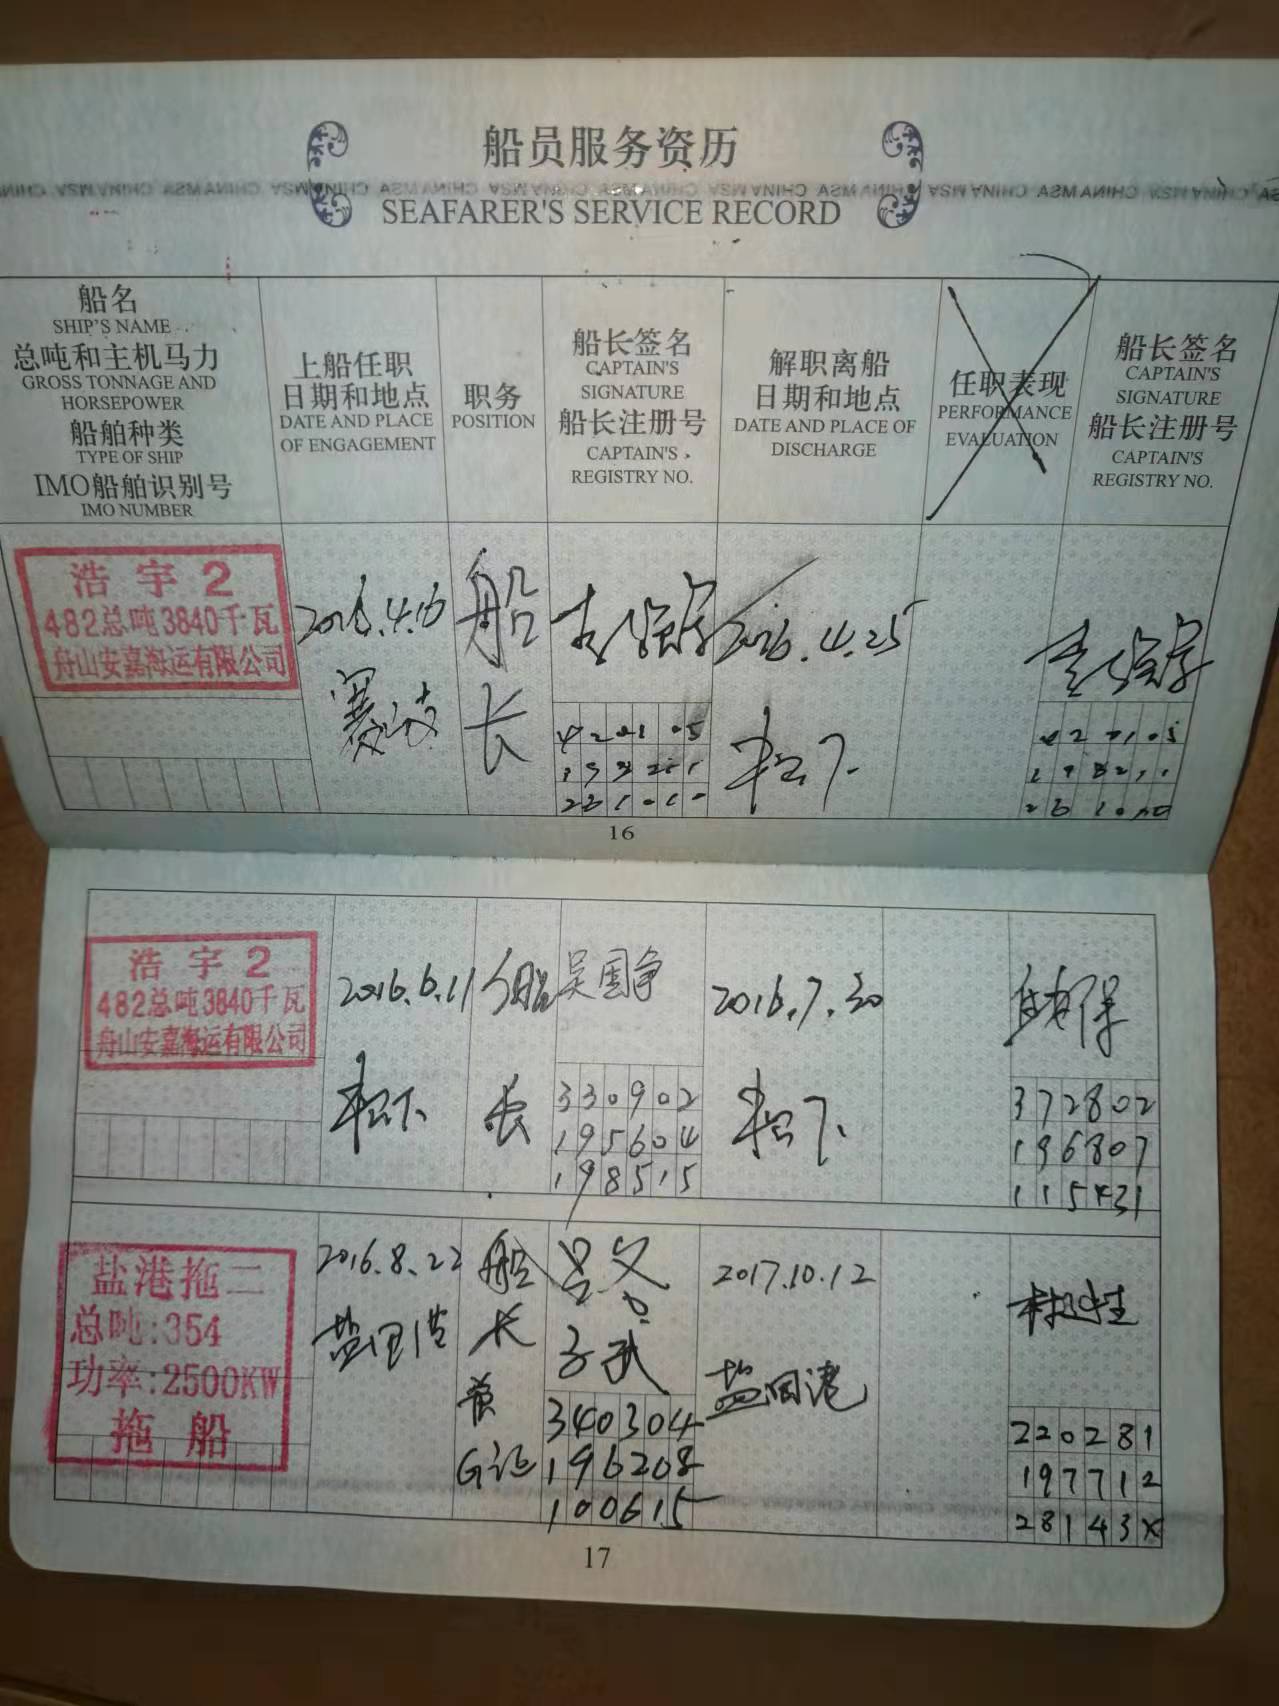 船员服务资历
CHINA MSA CHINA MSA CHINA MSA CHINA MSA
SEAFARER'S SERVICE RECORD
船名
SHIP'S NAME
总吨和主机马力
GROSS TONNAGE AND
HORSEPOWER
船舶种类
TYPE OF SHIP
IMO船舶识别号
IMO NUMBER
上船任职
日期和地点
DATE AND PLACE
OF ENGAGEMENT
职务
POSITION
船长签名
CAPTAIN'S
SIGNATURE
船长注册号
CAPTAIN'S
REGISTRY NO.
解职离船
日期和地点
DATE AND PLACE OF
DISCHARGE
任职表现
PERFORMANCE
EVALUATION
船长签名
CAPTAIN'S
SIGNATURE
船长注册号
CAPTAIN'S
REGISTRY NO.
浩宇2
482总吨3840千瓦
舟山安嘉海运有限公司
船
长
16
浩宇2
482总吨3840千瓦
舟山安嘉海运有限公司
2016.6.11
松下
船
长
吴国争
330902
195604
198515
2016.7.30
松下
372802
196807
115431
盐港拖二
总吨:354
功率:2500KW
拖船
2016.8.22
盐田港
船
长
兼
G证
340304
196208
100615
2017.10.12
盐田港
220281
197712
28143X
17